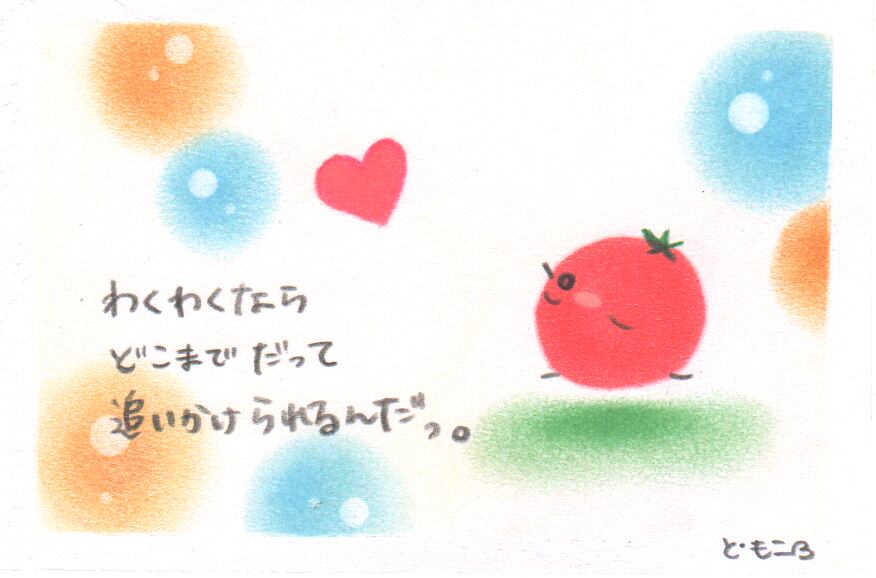 わくわくなら
どこまでだって
追いかけられるんだっ。